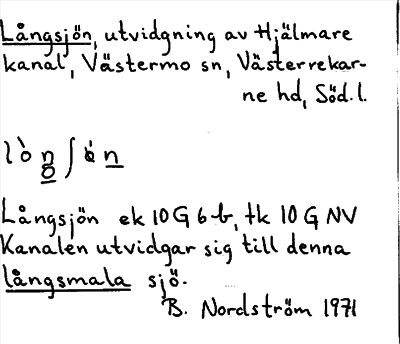 Långsjön, utvidgning av Hjälmare
kanal, Västermo sn, Västerrekar-
ne hd, Söd. l.
Långsjön ek 10 G 6 b, tk 10 G NV
Kanalen utvidgar sig till denna
långsmala sjö.
B. Nordström 1971